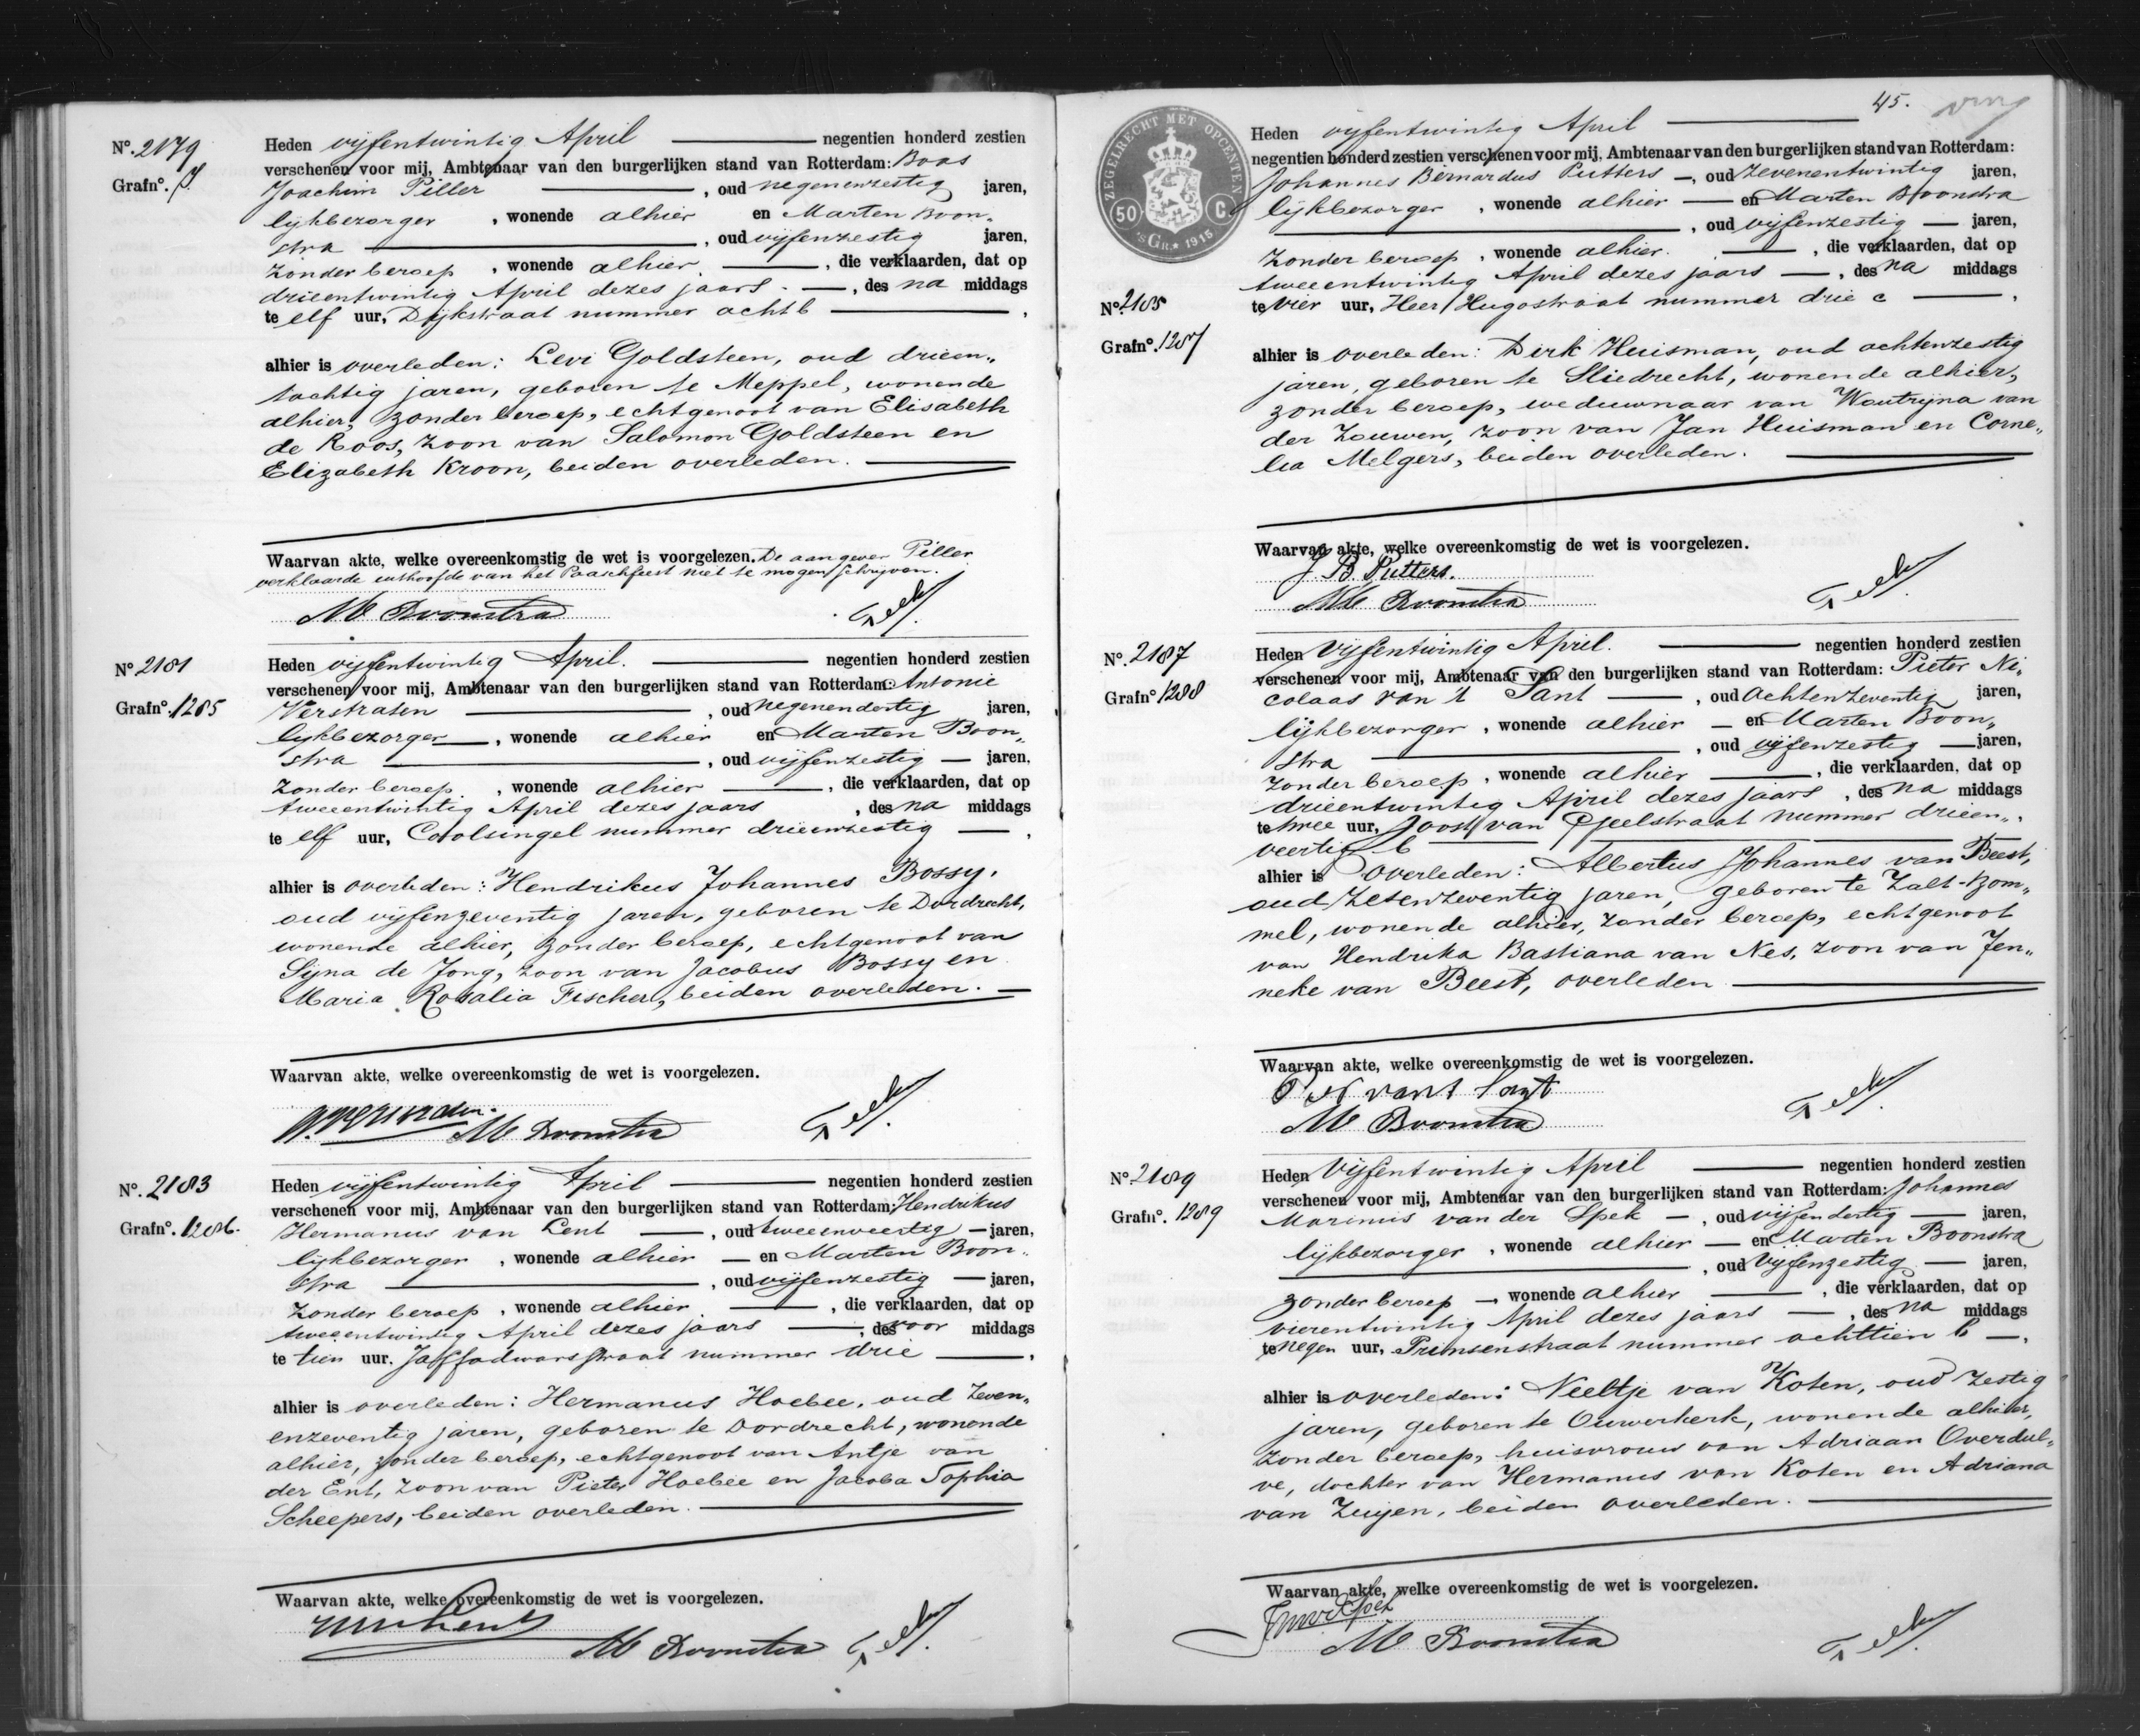 No. 2179
Grafno. J.
Heden vijfentwintig April negentien honderd zestien
verschenen voor mij, Ambtenaar van den burgerlijken stand van Rotterdam: Boas
Joachim Piller, oud negenenzestig jaren,
lijkbezorger, wonende alhier en Marten Boon„
stra, oud vijfenzestig jaren,
zonder beroep, wonende alhier, die verklaarden, dat op
drieentwintig April dezes jaars, des na middags
te elf uur, Dijkstraat nummer acht b,
alhier is overleden: Levi Goldsteen, oud drieen„
tachtig jaren, geboren te Meppel, wonende
alhier, zonder beroep, echtgenoot van Elisabeth
de Roos, zoon van Salomon Goldsteen en
Elizabeth Kroon, beiden overleden.
Waarvan akte, welke overeenkomstig de wet is voorgelezen. De aangever Piller
verklaarde uithoofde van het Paaschfeest niet te mogen schrijven.
M Boonstra
No. 2181
Grafno. 1285
Heden vijfentwintig April. negentien honderd zestien
verschenen voor mij, Ambtenaar van den burgerlijken stand van Rotterdam: Antonie
Verstraten, oud negenendertig jaren,
lijkbezorger, wonende alhier en Marten Boon„
stra, oud vijfenzestig jaren,
zonder beroep, wonende alhier, die verklaarden, dat op
tweeentwintig April dezes jaars, des na middags
te elf uur, Coolsingel nummer drieenzestig,
alhier is overleden: Hendrikus Johannes Bossy,
oud vijfenzeventig jaren, geboren te Dordrecht,
wonende alhier, zonder beroep, echtgenoot van
Sijna de Jong, zoon van Jacobus Bossy en
Maria Rosalia Fischer, beiden overleden.
Waarvan akte, welke overeenkomstig de wet is voorgelezen.
M Boonstra
No. 2183
Grafno. 1286.
Heden vijfentwintig April negentien honderd zestien
verschenen voor mij, Ambtenaar van den burgerlijken stand van Rotterdam: Hendrikus
Hermanus van Lent, oud tweeenveertig jaren,
lijkbezorger, wonende alhier en Marten Boon„
stra, oud vijfenzestig jaren,
zonder beroep, wonende alhier, die verklaarden, dat op
tweeentwintig April dezes jaars, des voor middags
te tien uur, Jaffadwarsstraat nummer drie,
alhier is overleden: Hermanus Hoebee, oud zeven„
enzeventig jaren, geboren te Dordrecht, wonende
alhier, zonder beroep, echtgenoot van Antje van
der Ent, zoon van Pieter Hoebee en Jacoba Sophia
Scheepers, beiden overleden.
Waarvan akte, welke overeenkomstig de wet is voorgelezen.
M Boonstra
45.
ZEGELRECHT MET OPCENTEN
50 C
'SGR. 1915
No. 2185
Grafno. 1287
Heden vijfentwintig April
negentien honderd zestien verschenen voor mij, Ambtenaar van den burgerlijken stand van Rotterdam:
Johannes Bernardus Putters, oud zevenentwintig jaren,
lijkbezorger, wonende alhier en Marten Boonstra
, oud vijfenzestig jaren,
zonder beroep, wonende alhier, die verklaarden, dat op
tweeentwintig April dezes jaars, des na middags
te vier uur, Heer Hugostraat nummer drie c,
alhier is overleden: Dirk Huisman, oud achtenzestig
jaren, geboren te Sliedrecht, wonende alhier,
zonder beroep, weduwnaar van Woutrijna van
der Zouwen, zoon van Jan Huisman en Corne„
lia Melgers, beiden overleden.
Waarvan akte, welke overeenkomstig de wet is voorgelezen.
J B. Putters.
M Boonstra
No. 2187
Grafno. 1288
Heden vijfentwintig April. negentien honderd zestien
verschenen voor mij, Ambtenaar van den burgerlijken stand van Rotterdam: Pieter Ni„
colaas van 't Sant, oud achtenzeventig jaren,
lijkbezorger, wonende alhier en Marten Boon„
stra, oud vijfenzestig jaren,
zonder beroep, wonende alhier, die verklaarden, dat op
drieentwintig April dezes jaars, des na middags
te twee uur, Joost van Geelstraat nummer drieen„
veertig b
alhier is overleden: Albertus Johannes van Beest,
oud zesenzeventig jaren, geboren te Zalt-Bom„
mel, wonende alhier, zonder beroep, echtgenoot
van Hendrika Bastiana van Nes, zoon van Jen„
neke van Beest, overleden
Waarvan akte, welke overeenkomstig de wet is voorgelezen.
P N van t Sant
M Boonstra
No. 2189
Grafno. 1289
Heden vijfentwintig April negentien honderd zestien
verschenen voor mij, Ambtenaar van den burgerlijken stand van Rotterdam: Johannes
Marinus van der Spek, oud vijfendertig jaren,
lijkbezorger, wonende alhier en Marten Boonstra
, oud vijfenzestig jaren,
zonder beroep, wonende alhier, die verklaarden, dat op
vierentwintig April dezes jaars, des na middags
te negen uur, Prinsenstraat nummer achttien b,
alhier is overleden: Neeltje van Koten, oud zestig
jaren, geboren te Ouwerkerk, wonende alhier,
zonder beroep, huisvrouw van Adriaan Overdul„
ve, dochter van Hermanus van Koten en Adriana
van Zuijen, beiden overleden.
Waarvan akte, welke overeenkomstig de wet is voorgelezen.
M Boonstra